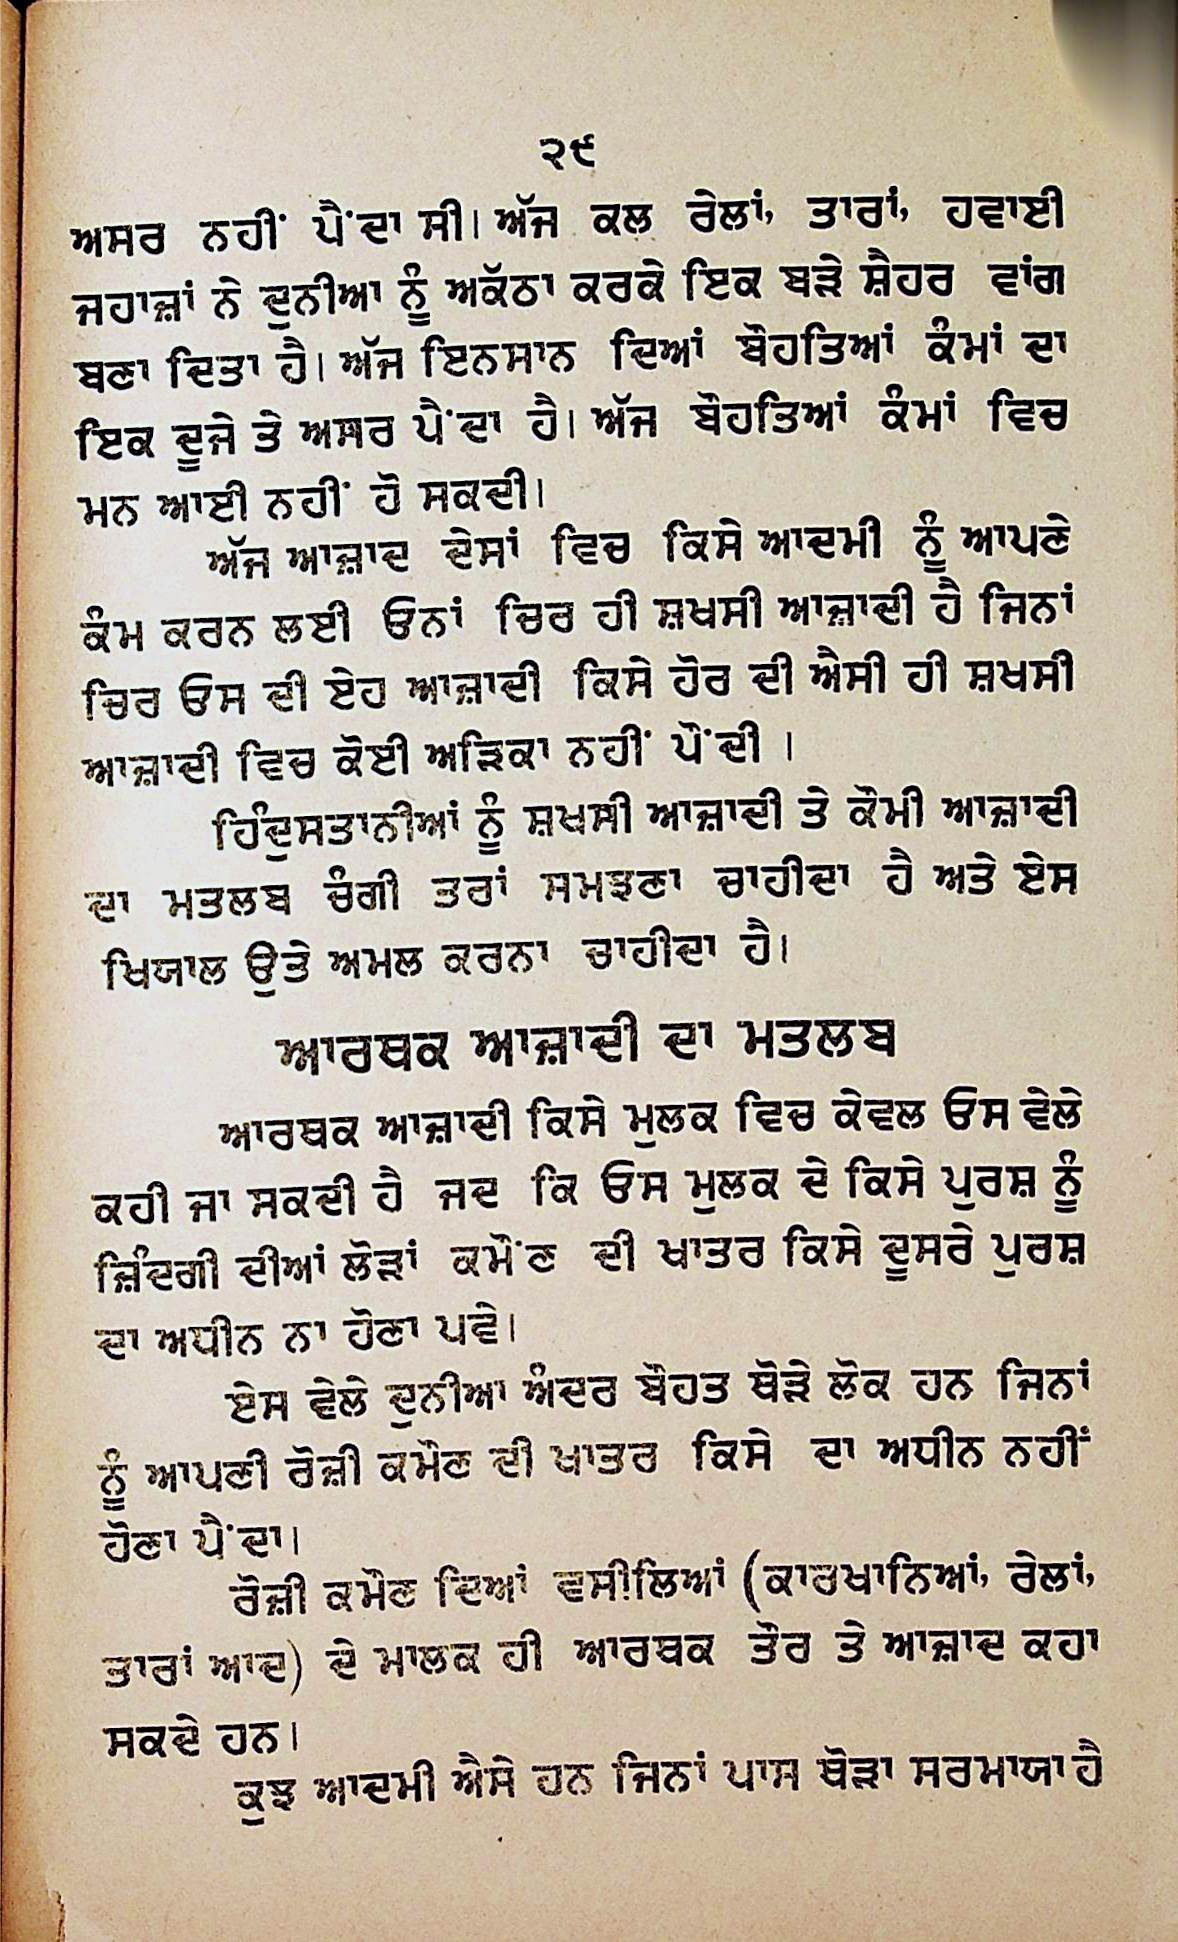 ੨੯
ਅਸਰ ਨਹੀਂ ਪੈਂਦਾ ਸੀ। ਅੱਜ ਕਲ ਰੇਲਾਂ, ਤਾਰਾਂ, ਹਵਾਈ
ਜਹਾਜ਼ਾਂ ਨੇ ਦੁਨੀਆ ਨੂੰ ਅਕੱਠਾ ਕਰਕੇ ਇਕ ਬੜੇ ਸ਼ੈਹਰ ਵਾਂਗ
ਬਣਾ ਦਿਤਾ ਹੈ। ਅੱਜ ਇਨਸਾਨ ਦਿਆਂ ਬੌਹਤਿਆਂ ਕੰਮਾਂ ਦਾ
ਇਕ ਦੂਜੇ ਤੇ ਅਸਰ ਪੈਂਦਾ ਹੈ। ਅੱਜ ਬੌਹਤਿਆਂ ਕੰਮਾਂ ਵਿਚ
ਮਨ ਆਈ ਨਹੀਂ ਹੋ ਸਕਦੀ।
ਅੱਜ ਆਜ਼ਾਦ ਦੇਸਾਂ ਵਿਚ ਕਿਸੇ ਆਦਮੀ ਨੂੰ ਆਪਣੇ
ਕੰਮ ਕਰਨ ਲਈ ਓਨਾਂ ਚਿਰ ਹੀ ਸ਼ਖਸੀ ਆਜ਼ਾਦੀ ਹੈ ਜਿਨਾਂ
ਚਿਰ ਓਸ ਦੀ ਏਹ ਆਜ਼ਾਦੀ ਕਿਸੇ ਹੋਰ ਦੀ ਐਸੀ ਹੀ ਸ਼ਖਸੀ
ਆਜ਼ਾਦੀ ਵਿਚ ਕੋਈ ਅੜਿਕਾ ਨਹੀਂ ਪੌਂਦੀ ।
ਹਿੰਦੁਸਤਾਨੀਆਂ ਨੂੰ ਸ਼ਖਸੀ ਆਜ਼ਾਦੀ ਤੇ ਕੌਮੀ ਆਜ਼ਾਦੀ
ਦਾ ਮਤਲਬ ਚੰਗੀ ਤਰਾਂ ਸਮਝਣਾ ਚਾਹੀਦਾ ਹੈ ਅਤੇ ਏਸ
ਖਿਯਾਲ ਉਤੇ ਅਮਲ ਕਰਨਾ ਚਾਹੀਦਾ ਹੈ।
ਆਰਥਕ ਆਜ਼ਾਦੀ ਦਾ ਮਤਲਬ
ਆਰਥਕ ਆਜ਼ਾਦੀ ਕਿਸੇ ਮੁਲਕ ਵਿਚ ਕੇਵਲ ਓਸ ਵੇਲੇ
ਕਹੀ ਜਾ ਸਕਦੀ ਹੈ ਜਦ ਕਿ ਓਸ ਮੁਲਕ ਦੇ ਕਿਸੇ ਪੁਰਸ਼ ਨੂੰ
ਜ਼ਿੰਦਗੀ ਦੀਆਂ ਲੋੜਾਂ ਕਮੌਂਣ ਦੀ ਖਾਤਰ ਕਿਸੇ ਦੂਸਰੇ ਪੁਰਸ਼
ਦਾ ਅਧੀਨ ਨਾ ਹੋਣਾ ਪਵੇ।
ਏਸ ਵੇਲੇ ਦੁਨੀਆ ਅੰਦਰ ਬੌਹਤ ਥੋੜੇ ਲੋਕ ਹਨ ਜਿਨਾਂ
ਨੂੰ ਆਪਣੀ ਰੋਜ਼ੀ ਕਮੌਣ ਦੀ ਖਾਤਰ ਕਿਸੇ ਦਾ ਅਧੀਨ ਨਹੀਂ
ਹੋਣਾ ਪੈਂਦਾ।
ਰੋਜ਼ੀ ਕਮੌਣ ਦਿਆਂ ਵਸੀਲਿਆਂ (ਕਾਰਖਾਨਿਆਂ, ਰੇਲਾਂ,
ਤਾਰਾਂ ਆਦ) ਦੇ ਮਾਲਕ ਹੀ ਆਰਥਕ ਤੌਰ ਤੇ ਆਜ਼ਾਦ ਕਹਾ
ਸਕਦੇ ਹਨ।
ਕੁਝ ਆਦਮੀ ਐਸੇ ਹਨ ਜਿਨਾਂ ਪਾਸ ਥੋੜਾ ਸਰਮਾਯਾ ਹੈ